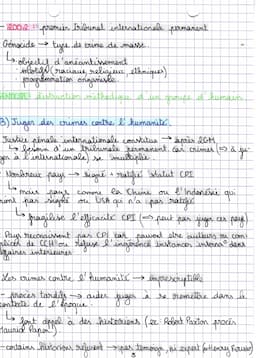 - 2002 : premier tribunal internationale permanent
Génocide → type de crime de masse.
↳ objectif d'anéantissement
motifs (raciaux religieux ethniques)
programmation organisée
destruction méthodique d'un groupe d'humain
3) Juger des crimes contre l'humanité.
Justice pénale internationale constitue → après 2GM
↳ besoin d'un tribunale permanent car crimes (⇒ à ju-
ger à l'internationale) se multiplie
- Nombreux pays → signé + ratifié statut CPI
↳ mais pays comme la Chine ou l'Indonésie qui
n'ont pas signés ou USA qui n'a pas ratifié
↳ fragilise l'efficacité CPI (⇒ peut pas juger ces pays)
- Pays reconnaissent pas CPI car peuvent être auteurs ou com-
plices de CCH ou refuse l'ingérence instances interna° dans
affaires intérieures
- Les crimes contre l'humanité → imprescriptible
- procès tardifs → aider juges à se remettre dans le
contexte de l'époque.
↳ font appel à des historiens (ex: Robert Paxton procès
Maurice Papon)
- certains historiens refusent → pas témoin, ni expert (Henry Rousso)